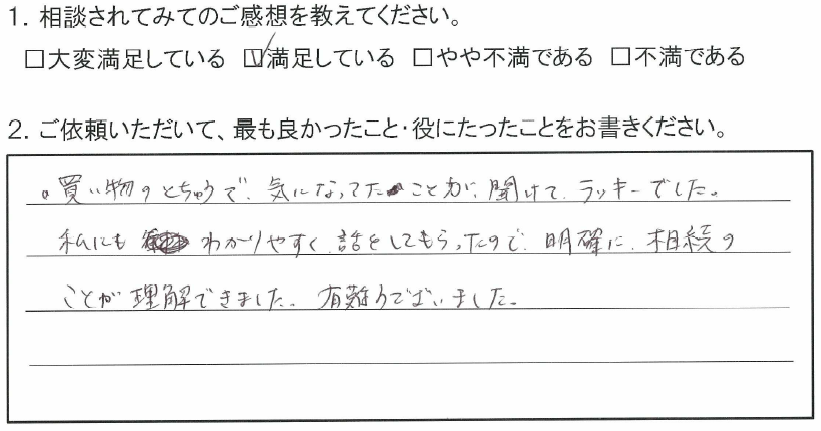 1. 相談されてみてのご感想を教えてください。
□大変満足している ☑満足している □やや不満である □不満である
2. ご依頼いただいて、最も良かったこと・役にたったことをお書きください。
。買い物のとちゅうで、気になってたことが、聞けて、ラッキーでした。
私にも わかりやすく 話をしてもらったので、明確に、相続の
ことが 理解できました。有難うございました。